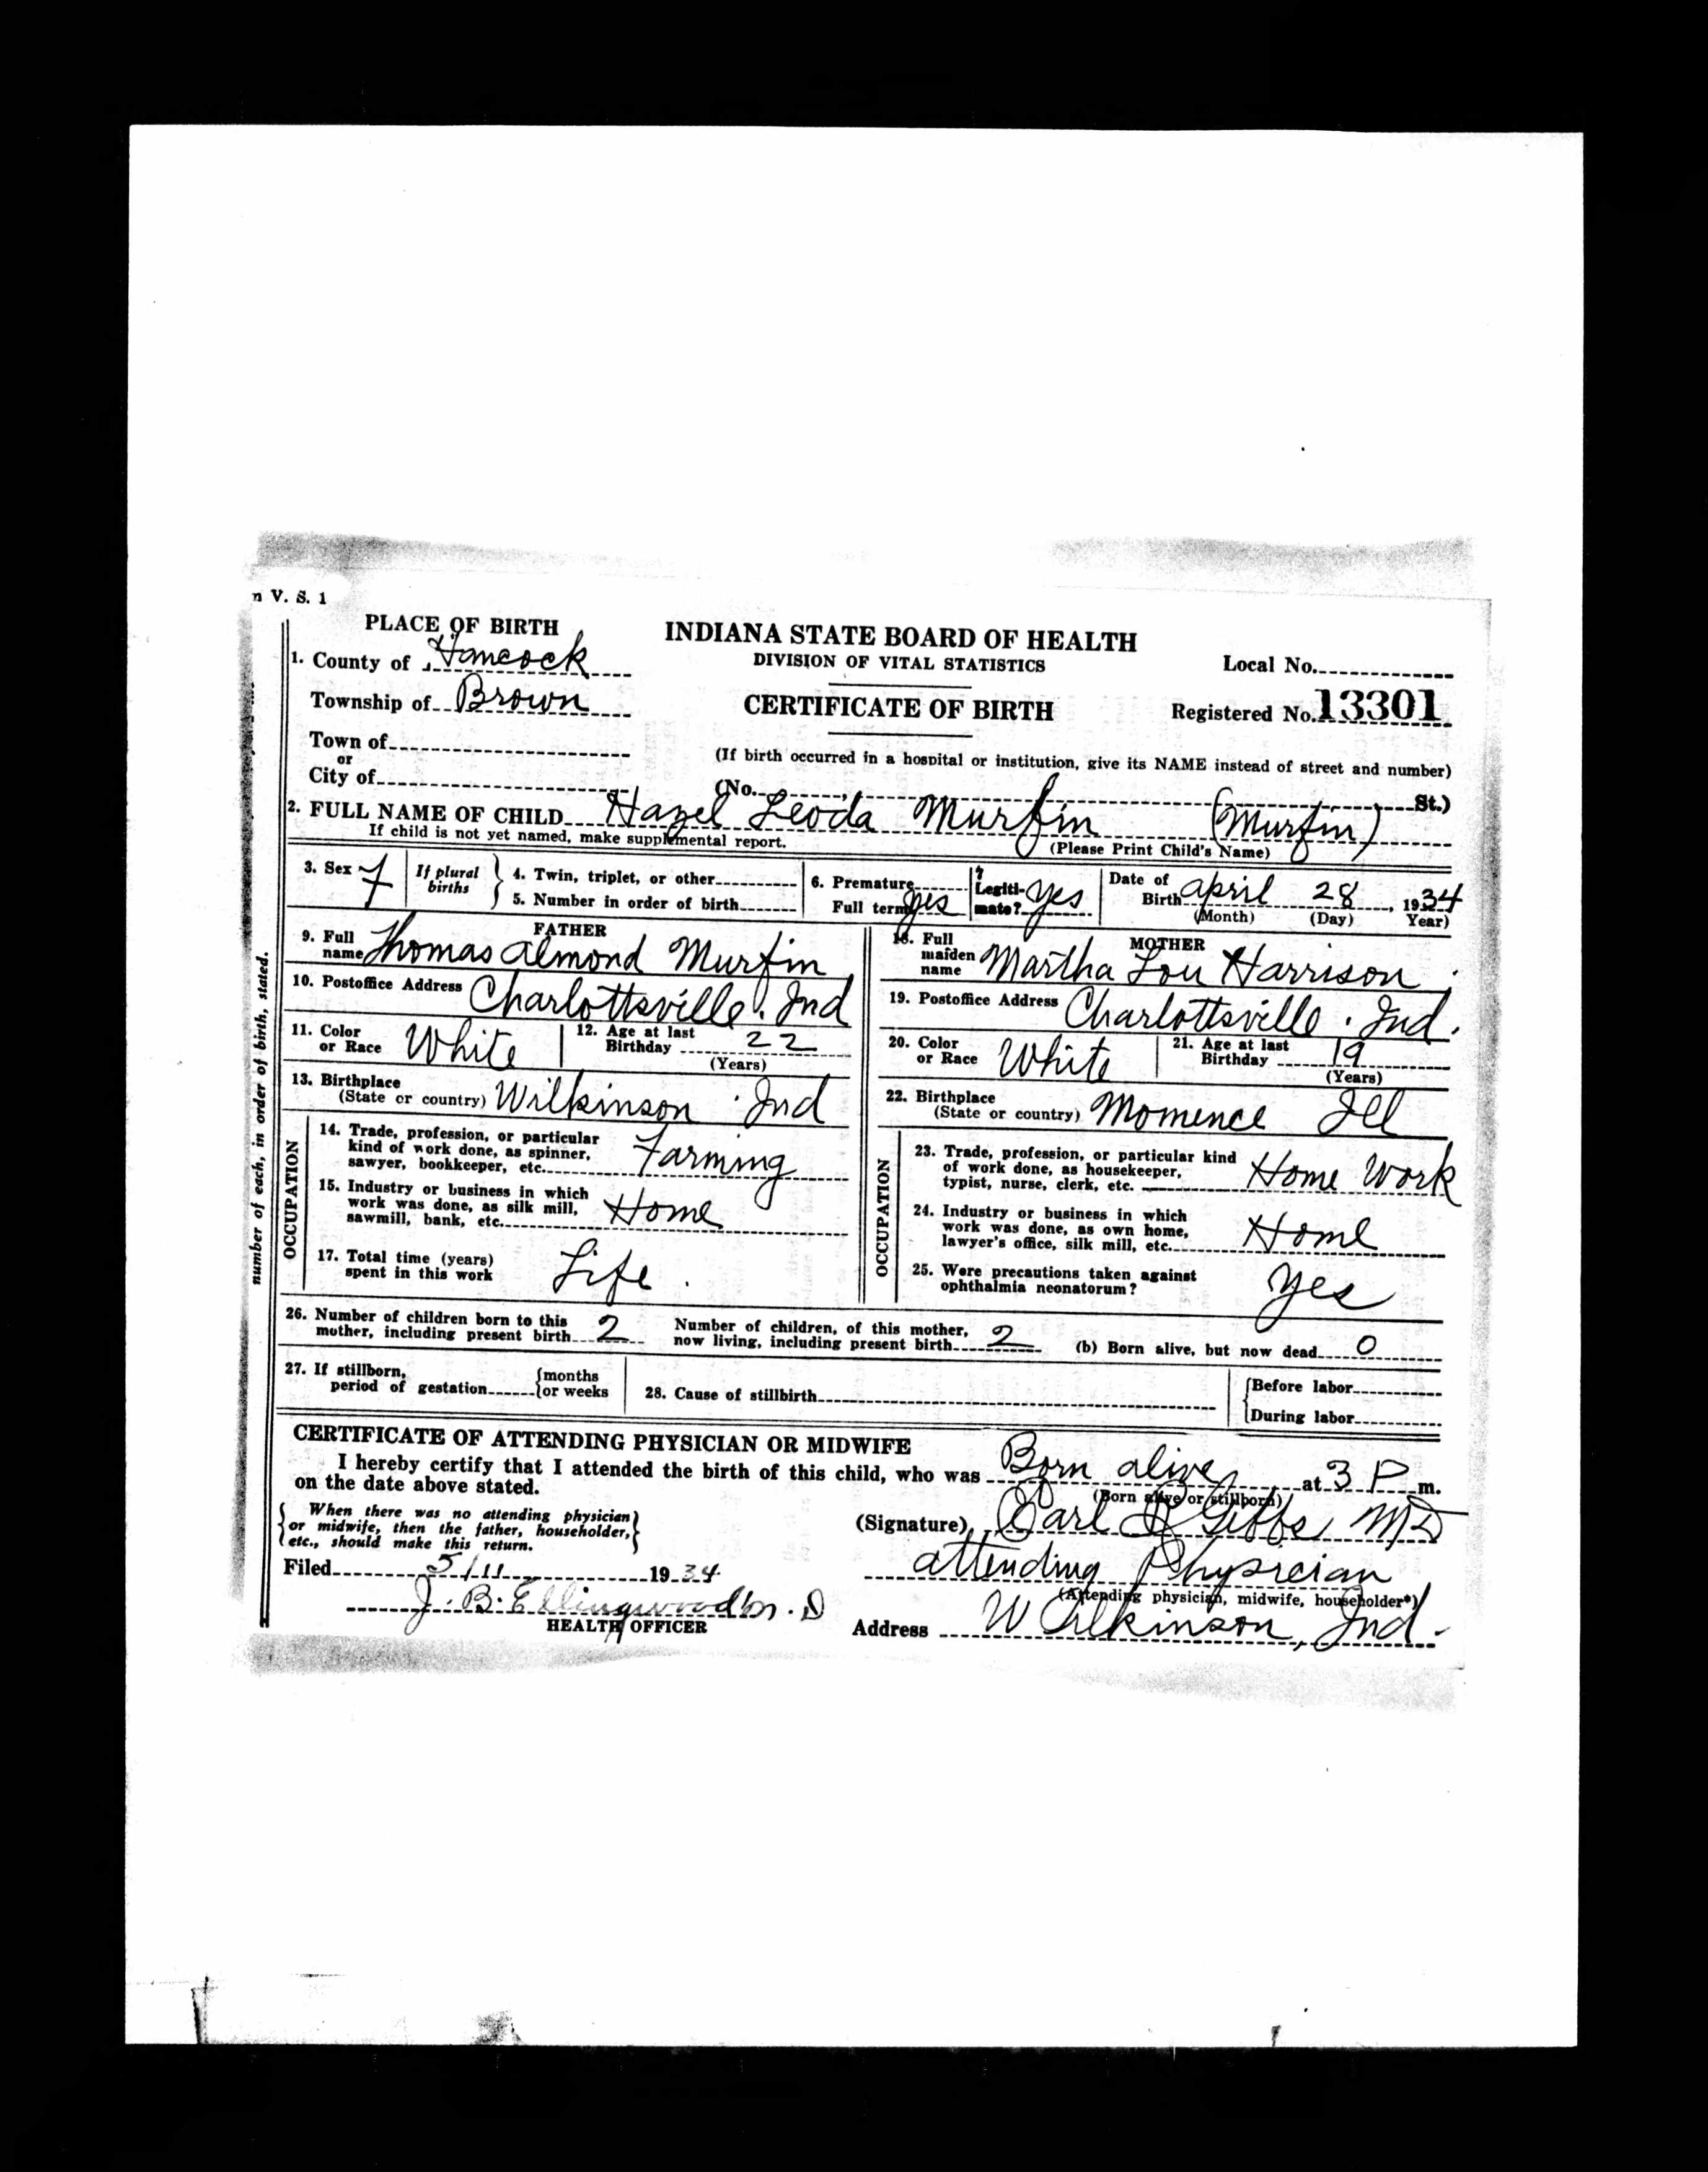 n V. S. 1
PLACE OF BIRTH
1. County of Hancock
Township of Brown
Town of
or
City of
INDIANA STATE BOARD OF HEALTH
DIVISION OF VITAL STATISTICS
CERTIFICATE OF BIRTH
Local No.
Registered No. 13301
(If birth occurred in a hospital or institution, give its NAME instead of street and number)
(No. , St.)
2. FULL NAME OF CHILD Hazel Leoda Murfin (Murfin)
If child is not yet named, make supplemental report. (Please Print Child's Name)
3. Sex f
If plural births
4. Twin, triplet, or other
5. Number in order of birth
6. Premature
Full term yes
7 Legiti-
mate? yes
Date of
Birth april 28, 1934
(Month) (Day) Year)
FATHER
9. Full
name Thomas almond Murfin
10. Postoffice Address Charlottsville. Ind
11. Color
or Race White
12. Age at last
Birthday 22
(Years)
13. Birthplace
(State or country) Wilkinson Ind
OCCUPATION
14. Trade, profession, or particular
kind of work done, as spinner,
sawyer, bookkeeper, etc. Farming
15. Industry or business in which
work was done, as silk mill,
sawmill, bank, etc. Home
17. Total time (years)
spent in this work Life.
MOTHER
18. Full
maiden
name Martha Lou Harrison
19. Postoffice Address Charlottsville. Ind.
20. Color
or Race White
21. Age at last
Birthday 19
(Years)
22. Birthplace
(State or country) Momence Ill
OCCUPATION
23. Trade, profession, or particular kind
of work done, as housekeeper,
typist, nurse, clerk, etc. Home Work
24. Industry or business in which
work was done, as own home,
lawyer's office, silk mill, etc. Home
25. Were precautions taken against
ophthalmia neonatorum? yes
26. Number of children born to this
mother, including present birth 2
Number of children, of this mother,
now living, including present birth 2
(b) Born alive, but now dead 0
27. If stillborn,
period of gestation
months
or weeks
28. Cause of stillbirth
Before labor
During labor
CERTIFICATE OF ATTENDING PHYSICIAN OR MIDWIFE
I hereby certify that I attended the birth of this child, who was Born alive at 3 P m.
on the date above stated. (Born alive or stillborn)
When there was no attending physician
or midwife, then the father, householder,
etc., should make this return.
(Signature) Carl R Gibbs, MD
attending Physician
(Attending physician, midwife, householder*)
Address Wilkinson, Ind.
Filed 5/11 1934
J. B. Ellingwood M. D
HEALTH OFFICER
number of each, in order of birth, stated.